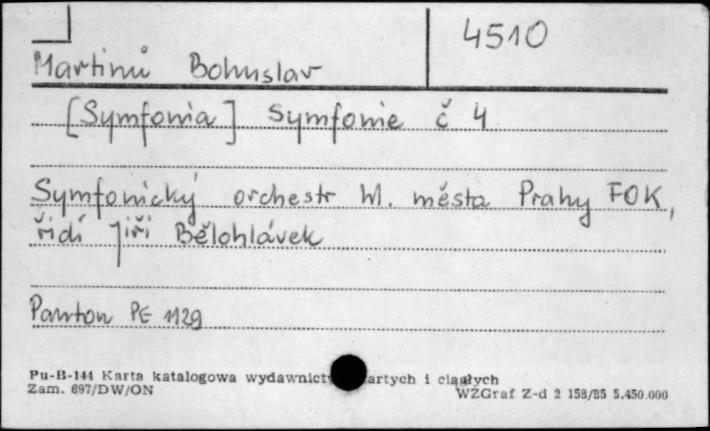 4510
Martinů Bohuslav
[Symfonia] Symfonie č 4
Symfonický orchestr hl. města Prahy FOK,
řídí Jiří Bělohlávek
Panton PE 1129
Pu-B-144 Karta katalogowa wydawnict artych i ciągłych
Zam. 697/DW/ON WZGraf Z-d 2 158/85 5.450.000